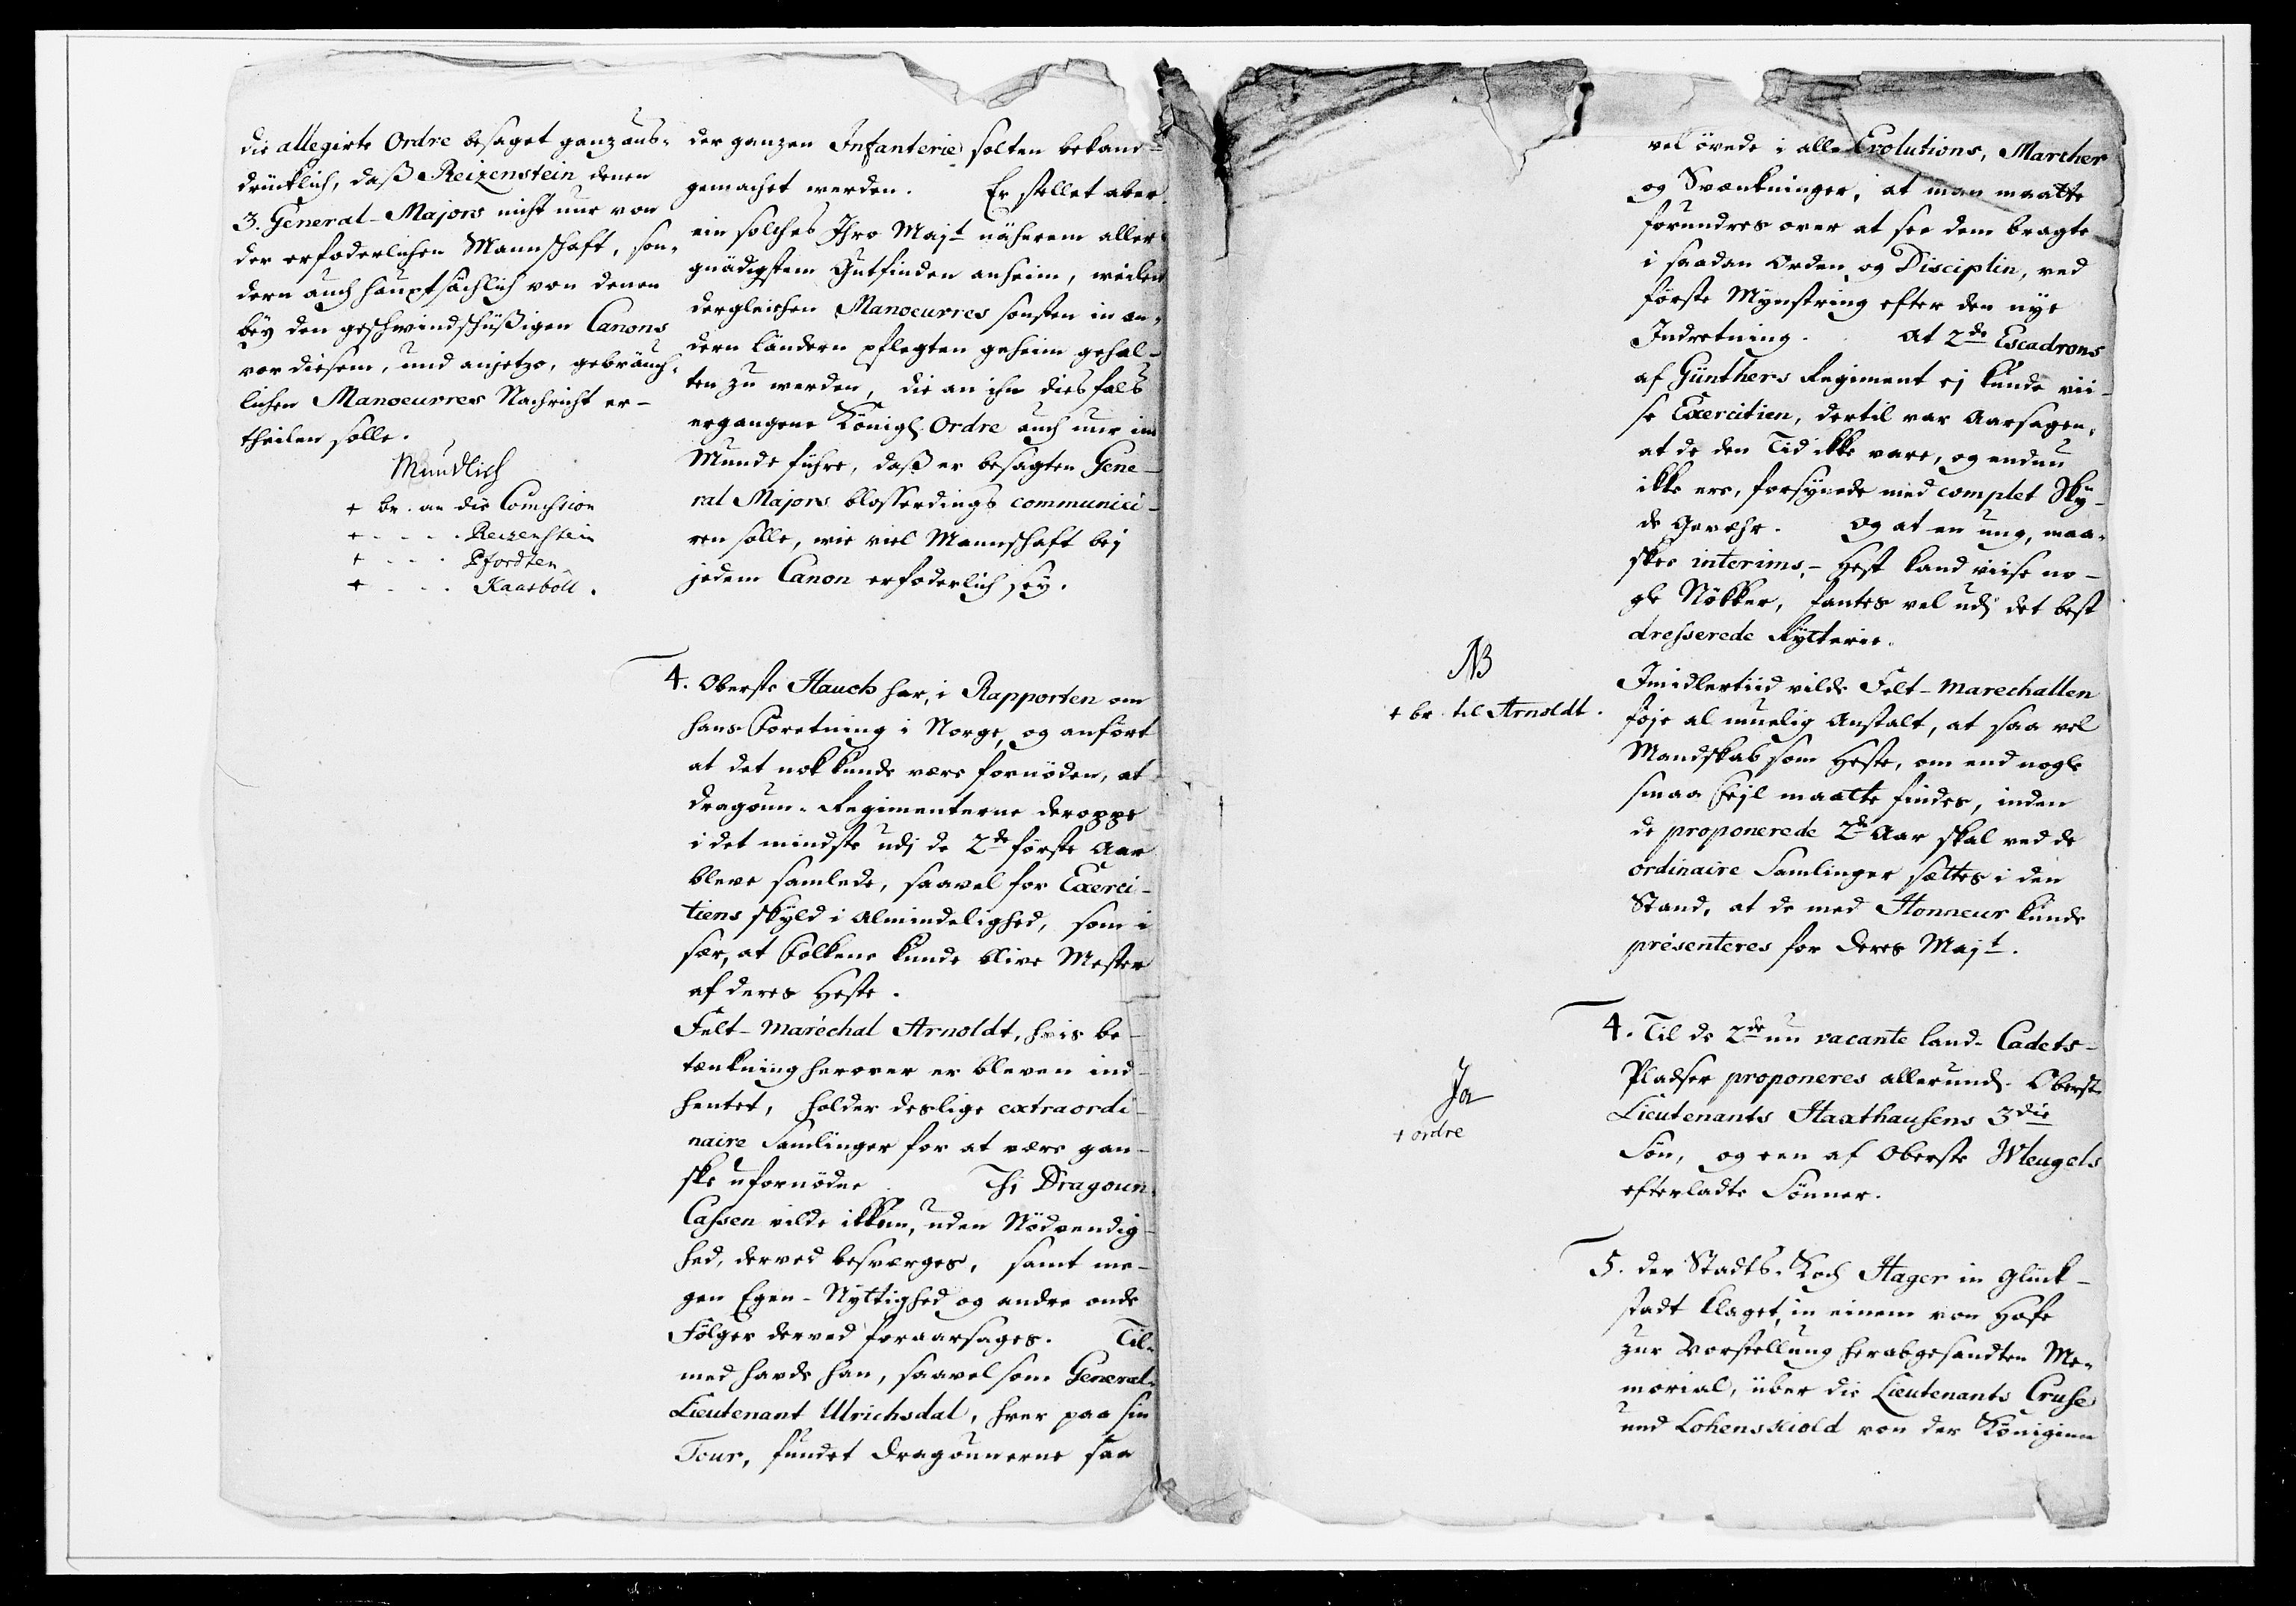 die allegirte Ordre besaget ganz aus-
drücklich, daß Reizenstein denen
3. General-Majors nicht nur von
der erfoderlichen Mannschaft, son-
dern auch hauptsächlich von denen
bey den geschwindschüßigen Canons
vor diesem, und anjetzo, gebräuch-
lichen Manoeuvres Nachricht er-
theilen solle.
Mundlich
+ br. an die Comission
+ - - - Reizenstein
+ - - - Pfordten
+ - - - Kaasböll.
der ganzen Infanterie solten bekand-
gemachet werden. Er stellet aber
ein solches Ihro Majt näherem aller-
gnädigstem Gutfinden anheim, weilen
dergleichen Manoeuvres sonsten in an-
dern Ländern pflegten geheim gehal-
ten zu werden, die an ihn diesfals
ergangene Königl Ordre auch nur im
Munde führe, daß er besagten Gene-
ral Majors blosserdings communici-
ren solle, wie viel Mannschaft bej
jedem Canon erfoderlich sey.
4. Oberste Hauch har, i Rapporten om
hans Foretning i Norge, og anført
at det nok kunde være fornöden, at
Dragoun-Regimenterne deroppe
i det mindste udj de 2de første Aar
bleve samlede, saavel for Exerci-
tiens skyld i Almindelighed, som i
sær, at Folkene kunde blive Mester
af deres Heste.
Felt-Maréchal Arnoldt, hvis be-
tænkning herover er bleven ind-
hentet, holder deslige extraordi-
naire Samlinger for at være gan-
ske ufornödne Thi Dragoun-
Cassen vilde ikkun, uden Nödvendig-
hed, derved besværges, samt me-
gen Egen-Nyttighed og andre onde
Fölger derved foraarsages. Til-
med havde han, saavel som General-
Lieutenant Ulrichsdal, hver paa sin
Tour, fundet Dragounerne saa
vel övede i alle Evolutions, Marcher
og Svænkninger, at man maatte
forundres over at see dem bragte
i saadan Orden og Disciplin, ved
første Mynstring efter den nye
Indretning. At 2de Escadrons
af Günthers Regiment ej kunde vii-
se Exercitien, dertil var Aarsagen,
at de den Tid ikke vare, og endnu
ikke ere, forsynede med complet Sky-
de Gevehr. Og at en ung, maa-
skee interims,- Hest kand viise no-
gle Nökker, fantes vel udj det best
dresserede Rytterie.
NB
+ br. til Arnoldt.
Imidlertiid vilde Felt-Marechallen
föje al muelig Anstalt, at saa vel
Mandskab som Heste, om end nogle
smaa Fejl maatte findes, inden
de proponerede 2de Aar skal ved de
ordinaire Samlinger sættes i den
Stand, at de med Honneur kunde
présenteres for Deres Majt.
4. Til de 2de nu vacante Land-Cadets-
Pladser proponeres allerundj Oberst-
Lieutenants Haxthausens 3die
Søn, og een af Oberste Wleugels
efterladte Sönner.
Ja
+ ordre
5. Der Stadts-Koch Hager in Glück-
stadt klaget, in einem von Hofe
zur Vorstellung herabgesandten Me-
morial, über die Lieutenants Cruse
und Lohenskiold von der Königinn